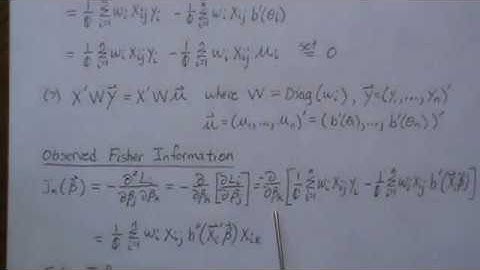 = 1/ϕ Σⁿᵢ₌₁ wᵢ xᵢⱼ yᵢ - 1/ϕ Σⁿᵢ₌₁ wᵢ xᵢⱼ b'(θᵢ)
= 1/ϕ Σⁿᵢ₌₁ wᵢ xᵢⱼ yᵢ - 1/ϕ Σⁿᵢ₌₁ wᵢ xᵢⱼ μᵢ set= 0
(⇒) X'Wy⃗ = X'Wμ⃗ where W = Diag(wᵢ), y⃗ = (y₁,...,yₙ)'
μ⃗ = (μ₁,...,μₙ)' = (b'(θ₁),...,b'(θₙ))'
Observed Fisher Information
Jₙ(β⃗) = - ∂²Lᵢ/∂βⱼ∂βₖ = - ∂/∂βₖ [∂Lᵢ/∂βⱼ] = -∂/∂βₖ [1/ϕ Σⁿᵢ₌₁ wᵢ xᵢⱼ yᵢ - 1/ϕ Σⁿᵢ₌₁ wᵢ xᵢⱼ b'(x⃗ᵢ'β⃗)]
= 1/ϕ Σⁿᵢ₌₁ wᵢ xᵢⱼ b''(x⃗ᵢ'β⃗) xᵢₖ